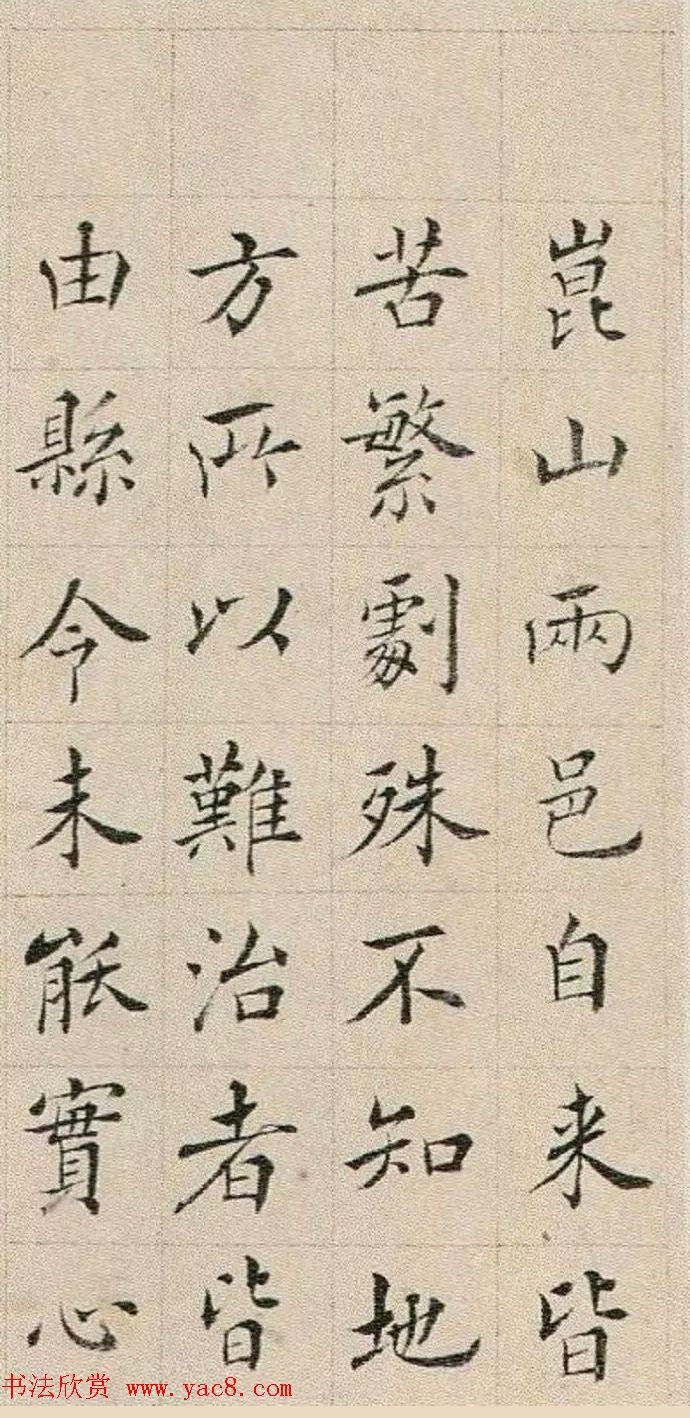 崑山兩邑自来皆
苦繁劇殊不知地
方所以難治者皆
由縣令未能實心
书法欣赏 www.yac8.com